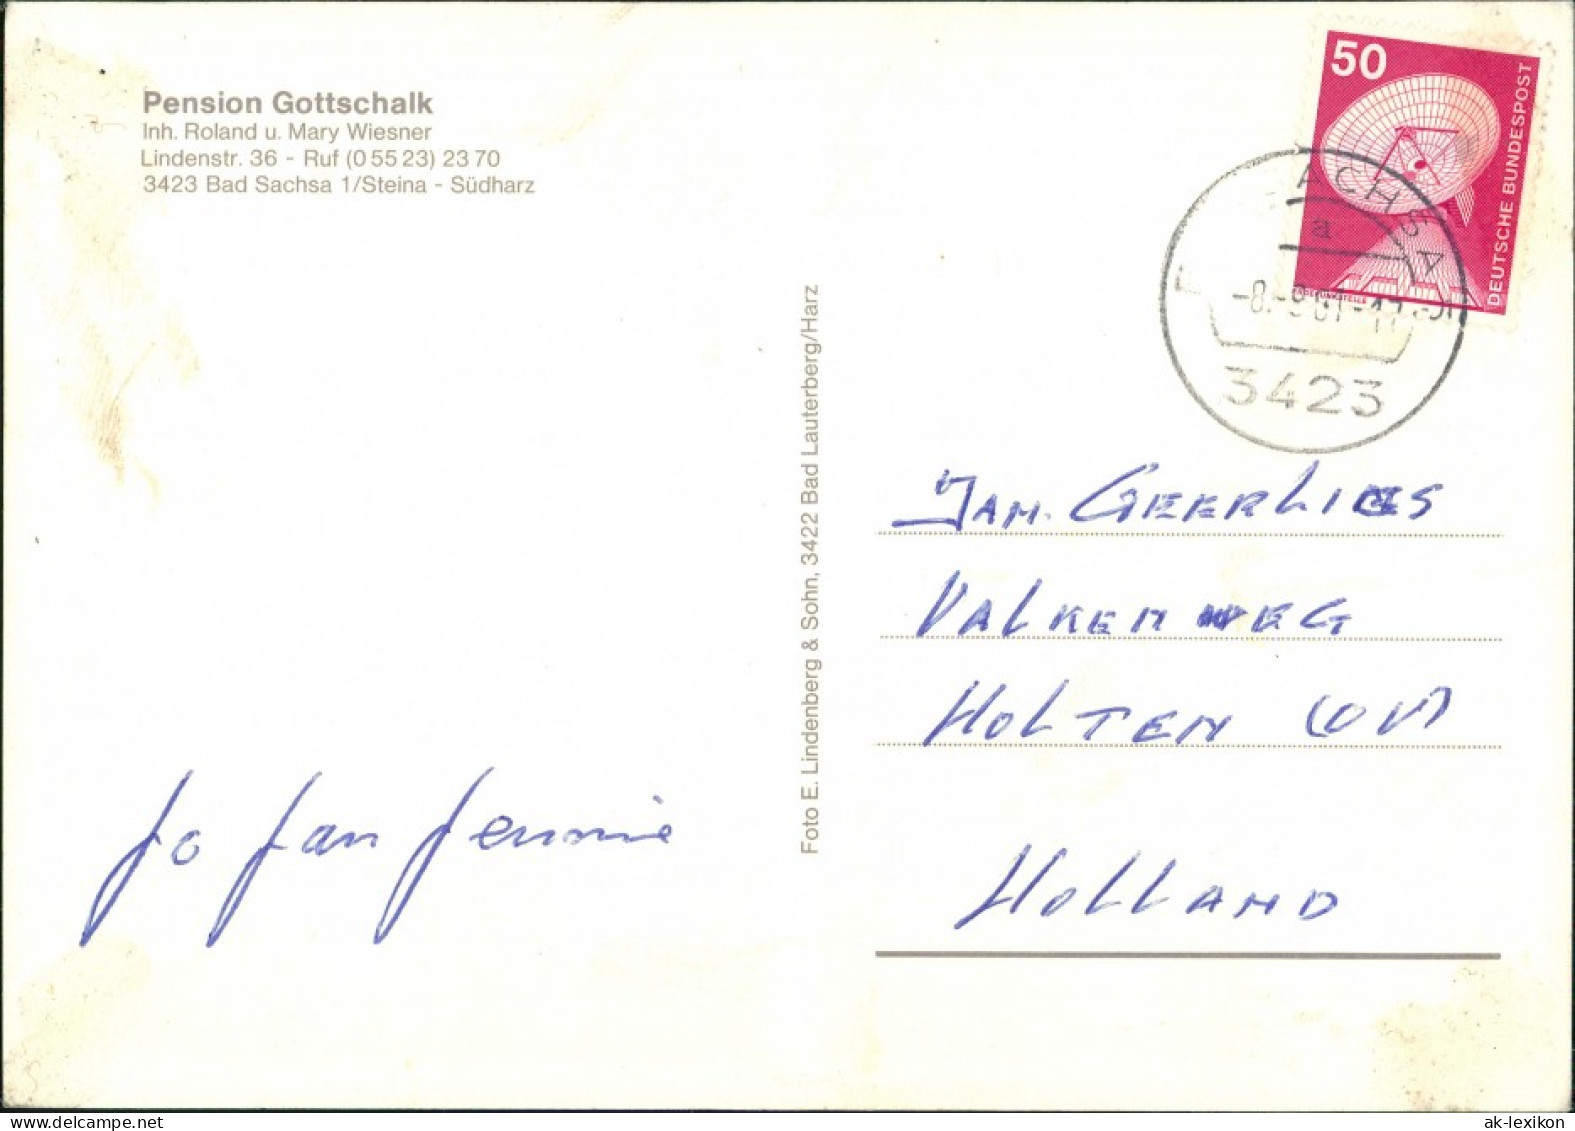 Pension Gottschalk
Inh. Roland u. Mary Wiesner
Lindenstr. 36 - Ruf (0 55 23) 23 70
3423 Bad Sachsa 1/Steina - Südharz
50
DEUTSCHE BUNDESPOST
ERDEFUNKSTELLE
ACHSA
a
3423
Foto E. Lindenberg & Sohn, 3422 Bad Lauterberg/Harz
JAN. GEERLIGS
VALKENWEG
HOLTEN (OV)
HOLLAND
Jo Jan Jennie
ak-lexikon